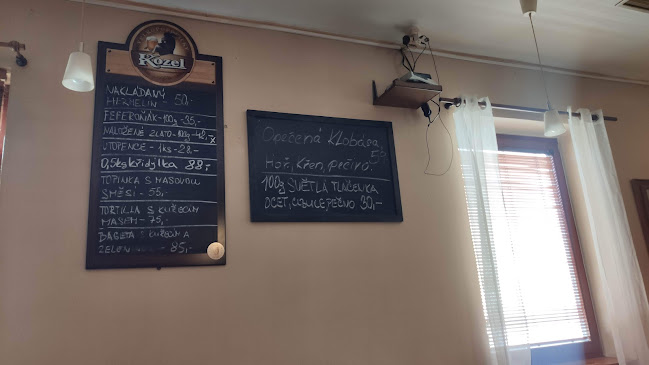 Kozel
NAKLÁDANÝ
HERMELÍN - 50.-
FEFERONÁK - 100g - 35,-
NALOŽENÉ ZLATO - 100g - 48,-
UTOPENCE - 1KS - 28.-
0,5kg křidýlka 88,-
TOPINKA S MASOVOU
SMĚSÍ - 55,-
TORTILLA S KUŘECÍM
MASEM - 75,-
BAGETA S KUŘECÍM A
85,-
Opečená Klobása,
Hoř, Křen, pečivo.
100g SVĚTLÁ TLAČENKA
OCET, CIBULE, PEČIVO 30,-